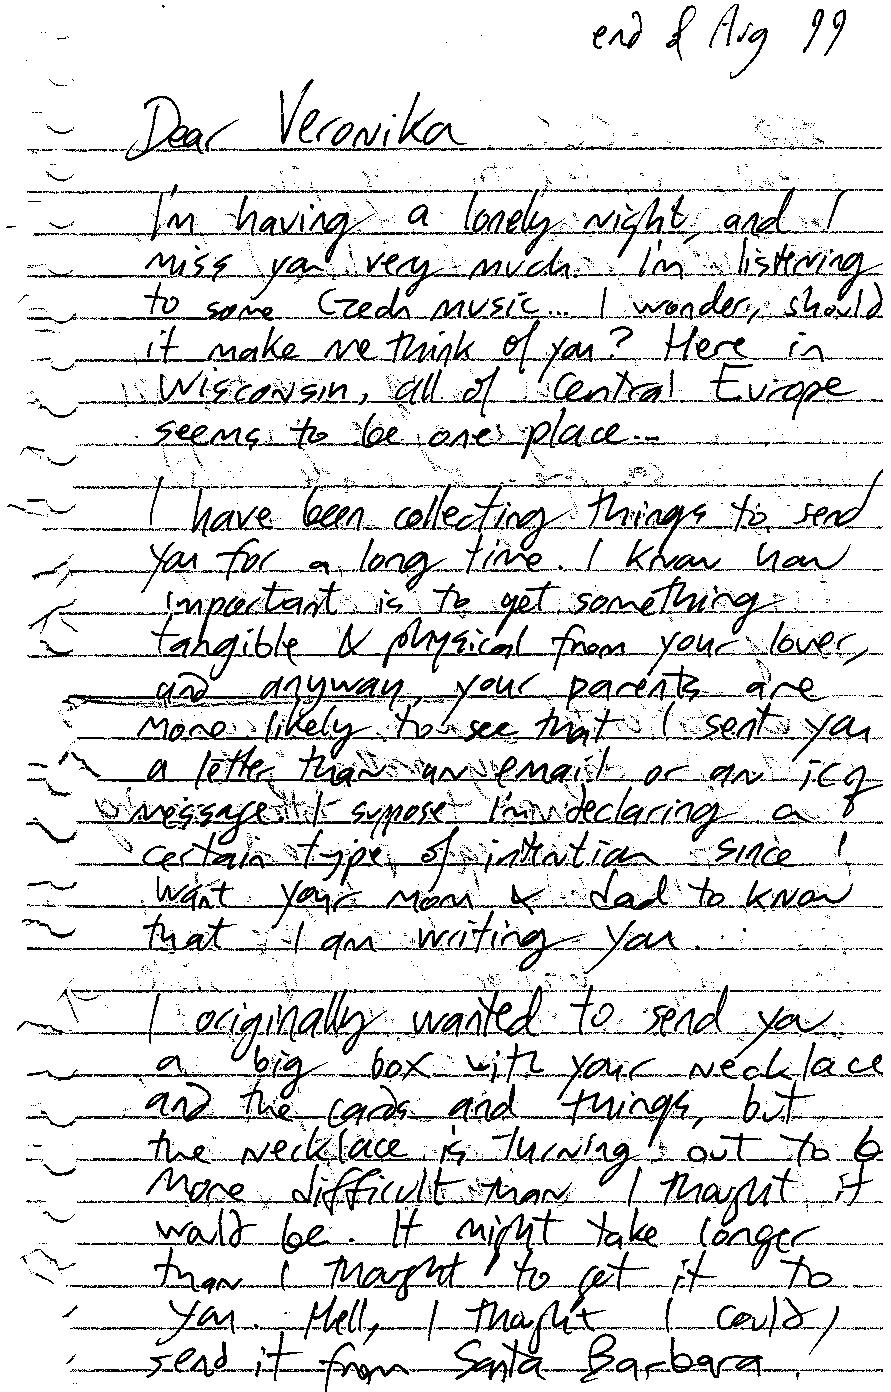 end of Aug 99
Dear Veronika
I'm having a lonely night, and I
miss you very much. I'm listening
to some Czech music... I wonder, should
it make me think of you? Here in
Wisconsin, all of Central Europe
seems to be one place...
I have been collecting things to send
you for a long time. I know how
important is to get something
tangible & physical from your lover,
and anyway, your parents are
more likely to see that I sent you
a letter than an email or an icq
message. I suppose I'm declaring a
certain type of intention since I
want your mom & dad to know
that I am writing you...
I originally wanted to send you
a big box with your necklace
and the cards and things, but
the necklace is turning out to b
more difficult than I thought it
would be. It might take longer
than I thought to get it to
you. Hell, I thought I could
send it from Santa Barbara!